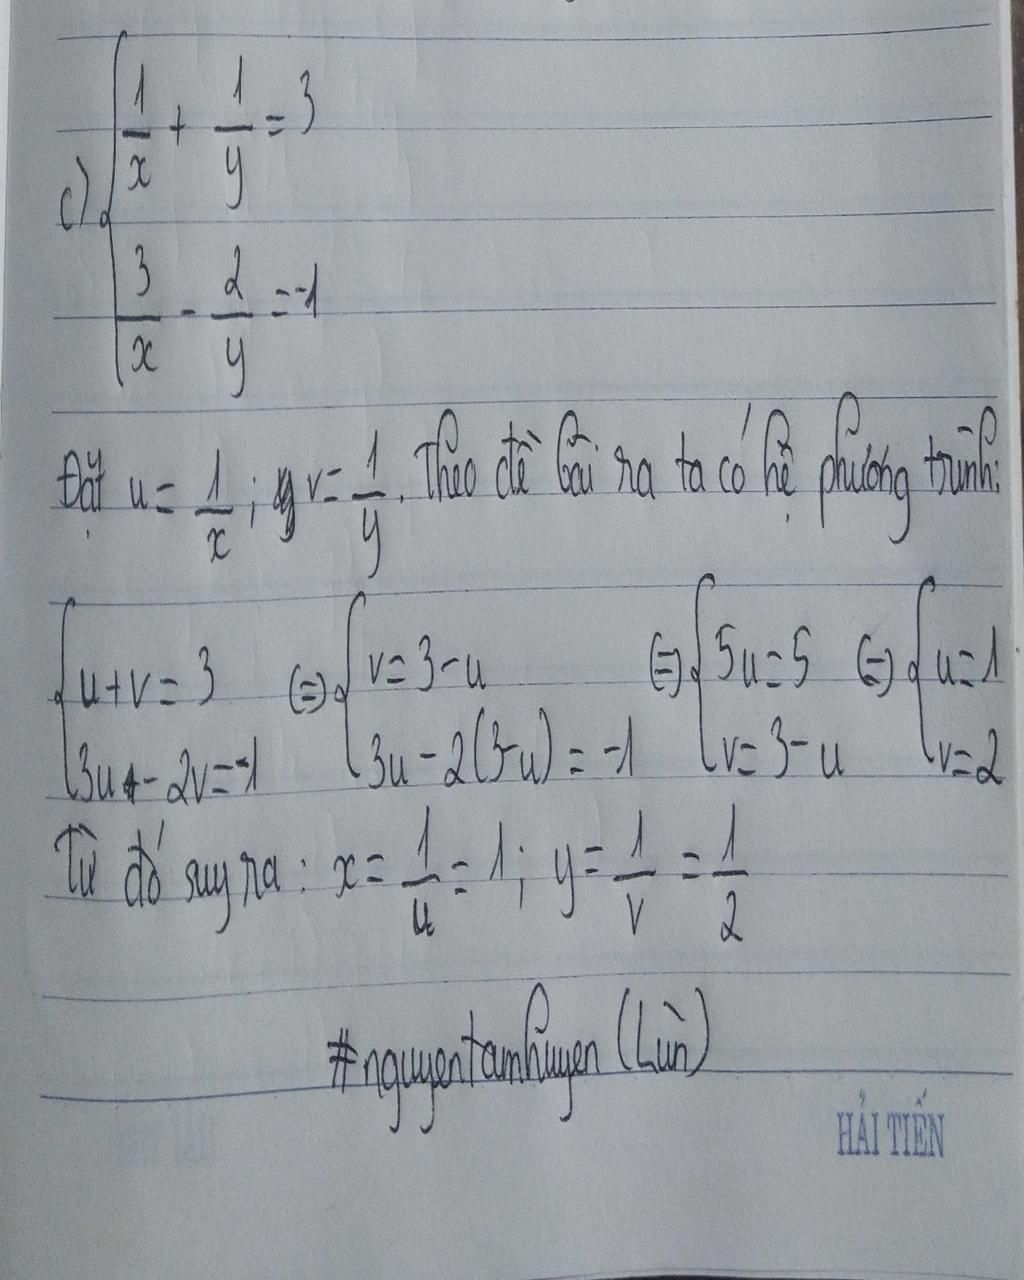 c) { 1/x + 1/y = 3
3/x - 2/y = -1
Đặt u = 1/x ; v = 1/y . Theo đề bài ra ta có hệ phương trình:
{ u+v = 3 (=) { v = 3-u (=) { 5u = 5 (=) { u = 1
3u - 2v = -1 3u - 2(3-u) = -1 v = 3-u v = 2
Từ đó suy ra : x = 1/u = 1 ; y = 1/v = 1/2
#nguyentamhuyen (Lùn)
HẢI TIẾN